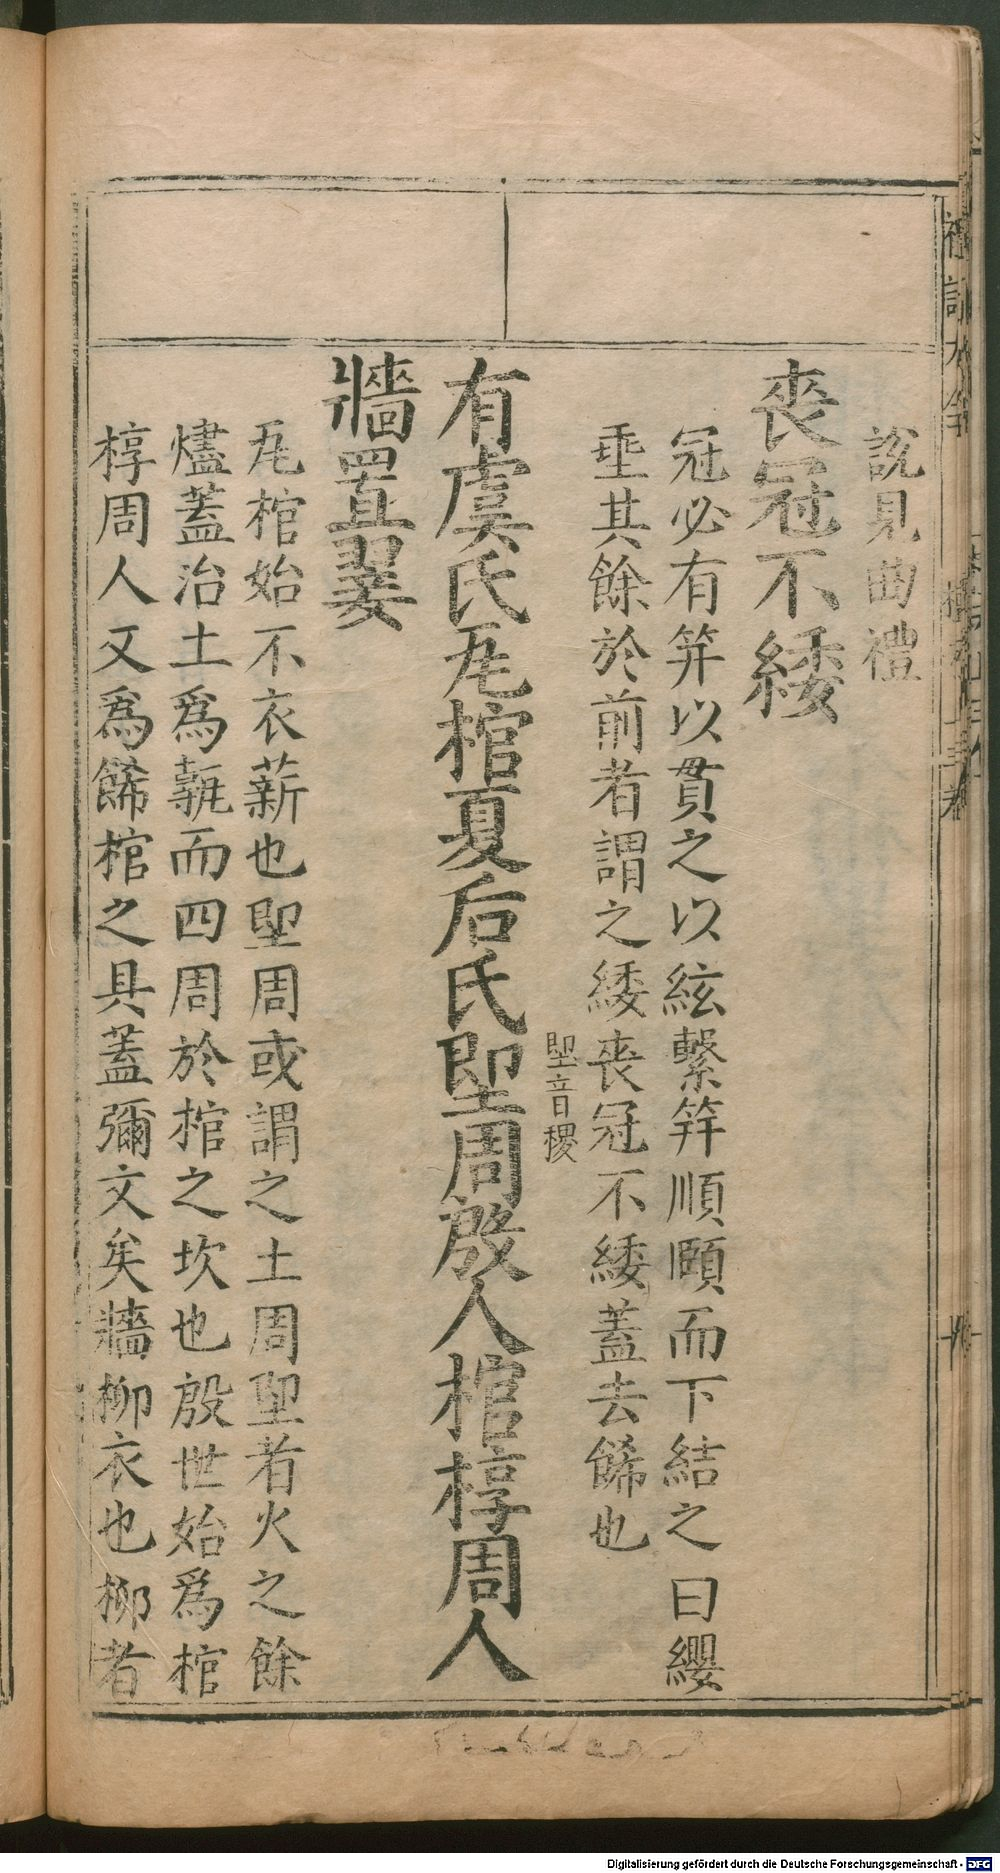 說見曲禮
喪冠不緌
冠必有笄以貫之以紘繫笄順頤而下結之曰纓
垂其餘於前者謂之緌喪冠不緌蓋去餙也
堲音稷
有虞氏瓦棺夏后氏堲周殷人棺椁周人
牆置翣
瓦棺始不衣薪也堲周或謂之土周堲者火之餘
燼蓋治土爲甎而四周於棺之坎也殷世始爲棺
椁周人又爲餙棺之具蓋彌文矣牆柳衣也柳者
Digitalisierung gefördert durch die Deutsche Forschungsgemeinschaft - DFG